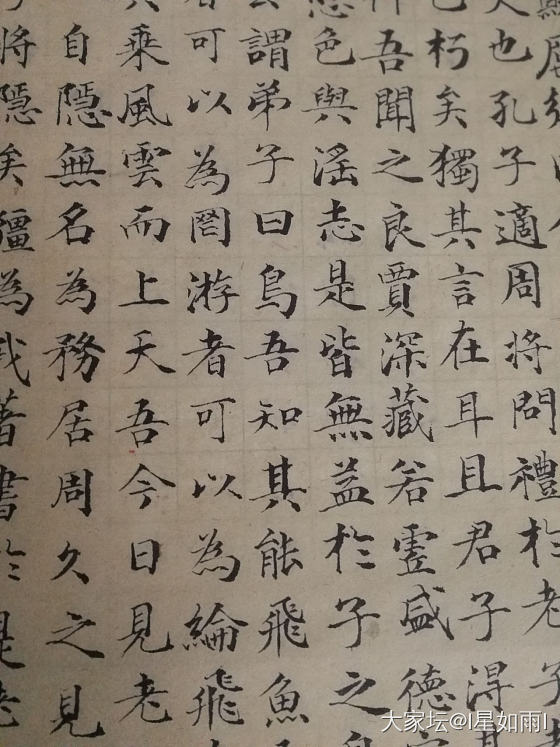 史也孔子適周將問禮於老子
已朽矣獨其言在耳且君子得其
吾聞之良賈深藏若虛盛德容
態色與滛志是皆無益於子之身
去謂弟子曰鳥吾知其能飛魚
者可以為罔游者可以為綸飛
其乘風雲而上天吾今日見老
自隱無名為務居周久之見
將隱矣彊為我著書於是老
大家坛@I星如雨I